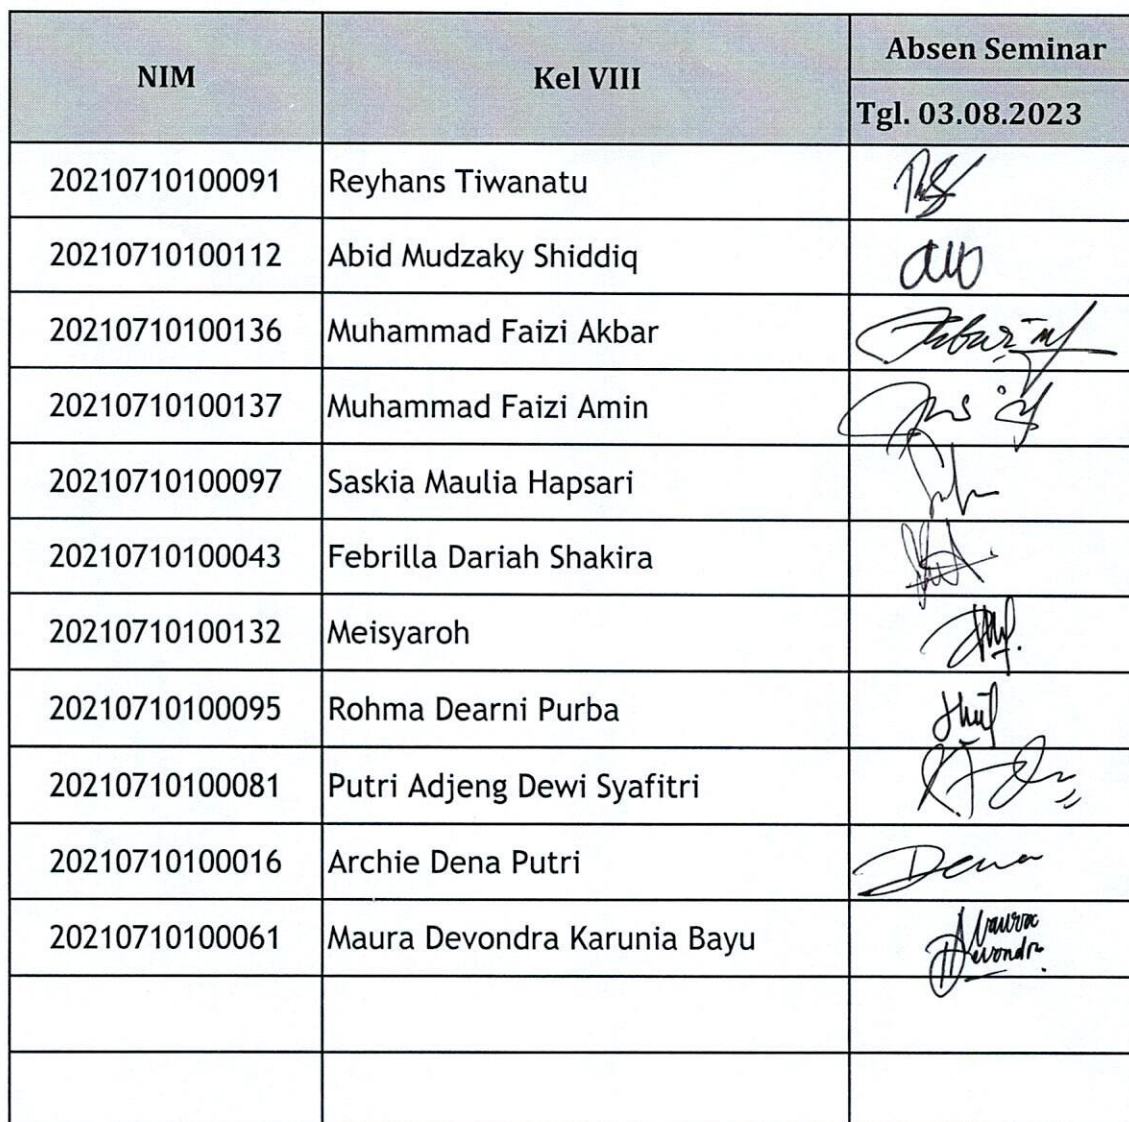 NIM Kel VIII Absen Seminar
Tgl. 03.08.2023
20210710100091 Reyhans Tiwanatu
20210710100112 Abid Mudzaky Shiddiq
20210710100136 Muhammad Faizi Akbar
20210710100137 Muhammad Faizi Amin
20210710100097 Saskia Maulia Hapsari
20210710100043 Febrilla Dariah Shakira
20210710100132 Meisyaroh
20210710100095 Rohma Dearni Purba
20210710100081 Putri Adjeng Dewi Syafitri
20210710100016 Archie Dena Putri Dena
20210710100061 Maura Devondra Karunia Bayu Maura
Devondra